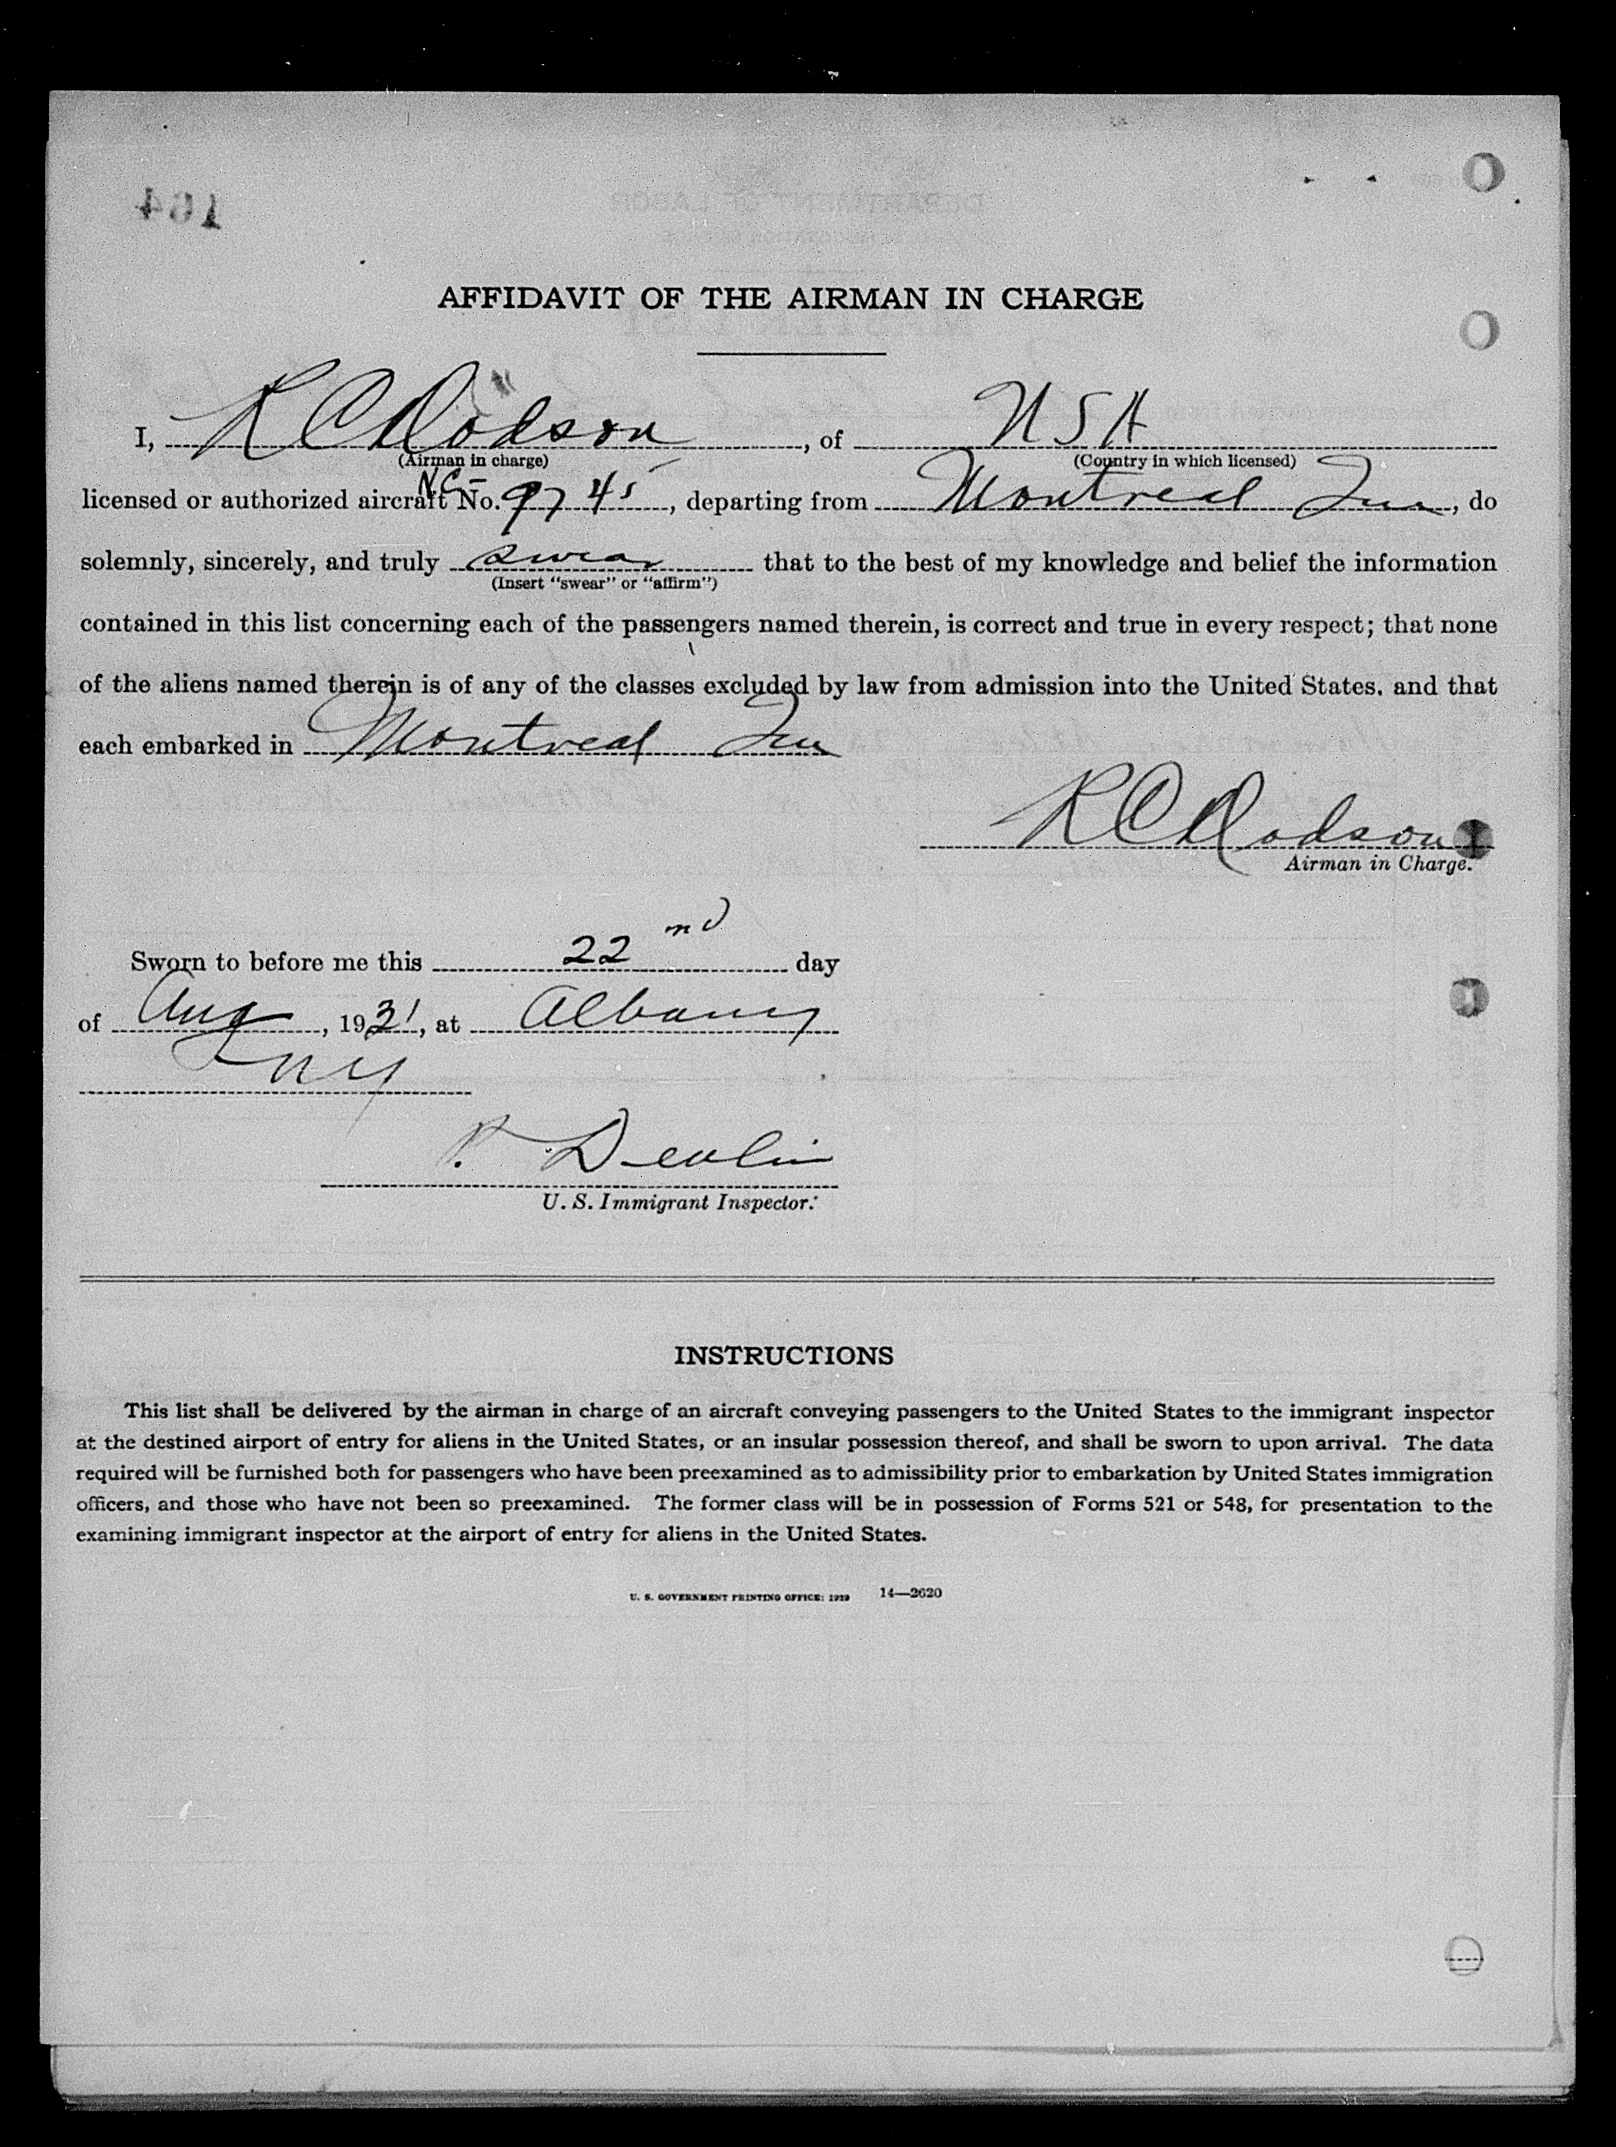 164
AFFIDAVIT OF THE AIRMAN IN CHARGE
I, R C Dodson, of USA
(Airman in charge) (Country in which licensed)
licensed or authorized aircraft No. NC- 9745, departing from Montreal Que, do
solemnly, sincerely, and truly swear that to the best of my knowledge and belief the information
(Insert "swear" or "affirm")
contained in this list concerning each of the passengers named therein, is correct and true in every respect; that none
of the aliens named therein is of any of the classes excluded by law from admission into the United States, and that
each embarked in Montreal Que
R C Dodson
Airman in Charge.
Sworn to before me this 22nd day
of Aug, 1931, at Albany
NY
P. Devlin
U. S. Immigrant Inspector.
INSTRUCTIONS
This list shall be delivered by the airman in charge of an aircraft conveying passengers to the United States to the immigrant inspector
at the destined airport of entry for aliens in the United States, or an insular possession thereof, and shall be sworn to upon arrival. The data
required will be furnished both for passengers who have been preexamined as to admissibility prior to embarkation by United States immigration
officers, and those who have not been so preexamined. The former class will be in possession of Forms 521 or 548, for presentation to the
examining immigrant inspector at the airport of entry for aliens in the United States.
U. S. GOVERNMENT PRINTING OFFICE: 1929 14—2620